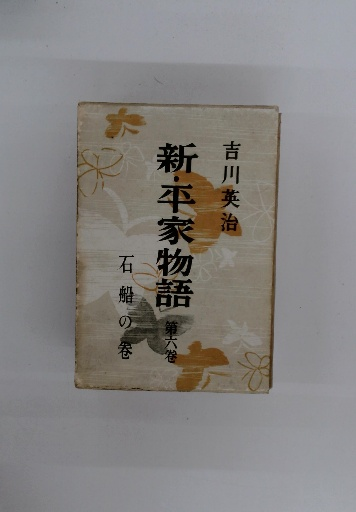 吉川英治
新・平家物語
第六巻
石船の巻